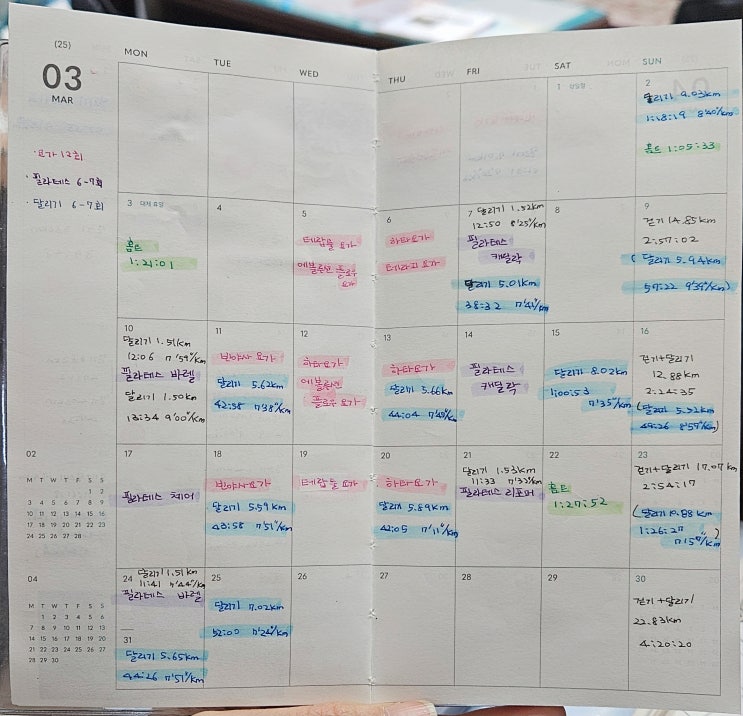 (25)
03
MAR
· 요가 12회
· 필라테스 6-7회
· 달리기 6-7회
MON
TUE
WED
THU
FRI
SAT
SUN
1 삼일절
2
달리기 9.03km
1:18:19 8'40"/km
홈트 1:05:33
3 대체 휴일
홈트
1:21:01
4
5
테라피 요가
에볼루션 플로우
요가
6
하타요가
테라피 요가
7 달리기 1.52km
12:50 8'25"/km
필라테스
캐딜락
달리기 5.01km
38:32 7'41"/km
8
9
걷기 14.85km
2:57:02
( 달리기 5.94km
57:22 9'39"/km)
10
달리기 1.51km
12:06 7'59"/km
필라테스 바렐
달리기 1.50km
13:34 9'00"/km
11
빈야사 요가
달리기 5.62km
42:58 7'38"/km
12
하타요가
에볼루션
플로우 요가
13
하타요가
달리기 5.66km
44:04 7'45"/km
14
필라테스
캐딜락
15
달리기 8.02km
1:00:53
7'35"/km
16
걷기+달리기
12.88km
2:24:35
(달리기 5.52km
49:26 8'57"/km)
17
필라테스 체어
18
빈야사요가
달리기 5.59km
43:58 7'51"/km
19
테라피 요가
20
하타요가
달리기 5.89km
42:05 7'11"/km
21
달리기 1.53km
11:33 7'33"/km
필라테스 리포머
22
홈트
1:27:52
23
걷기+달리기 17.07km
2:54:17
(달리기 10.88km
1:26:27 )
24 달리기 1.51km
11:41 7'44"/km
필라테스 바렐
31
달리기 5.65km
44:26 7'51"/km
25
달리기 7.02km
52:00 7'24"/km
26
27
28
29
30
걷기+달리기
22.83km
4:20:20
02
M T W T F S S
1 2
3 4 5 6 7 8 9
10 11 12 13 14 15 16
17 18 19 20 21 22 23
24 25 26 27 28
04
M T W T F S S
1 2 3 4 5 6
7 8 9 10 11 12 13
14 15 16 17 18 19 20
21 22 23 24 25 26 27
28 29 30